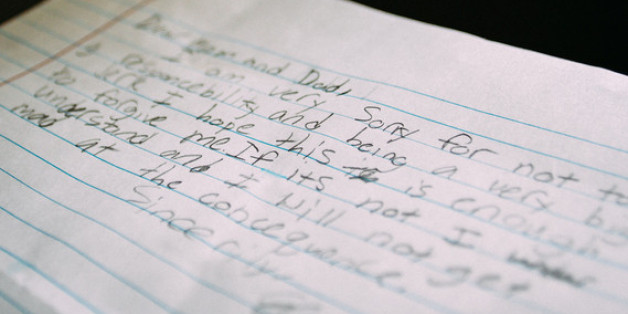 Dear Mom and Dad,
I am very Sorry for not
responcebility, and being a very
jerk I hope this is enough
to forgive me. If its not I
understand and I will not get
mad at the concequence.
Sincerily,